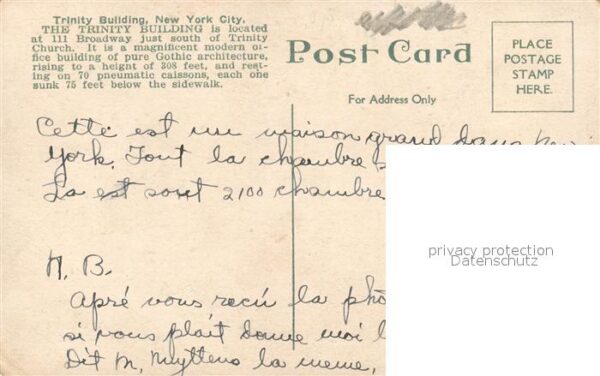 Trinity Building, New York City.
THE TRINITY BUILDING is located
at 111 Broadway just south of Trinity
Church. It is a magnificent modern of-
fice building of pure Gothic architecture,
rising to a height of 308 feet, and rest-
ing on 70 pneumatic caissons, each one
sunk 75 feet below the sidewalk.
Post Card
For Address Only
PLACE
POSTAGE
STAMP
HERE.
Cette est un maison grand dans New
York. Tout la chambre
La est sont 2100 chambre
N. B.
Apré vous recú la pho
si vous plait donne moi l
Dit M. Myttens la meme,
privacy protection
Datenschutz